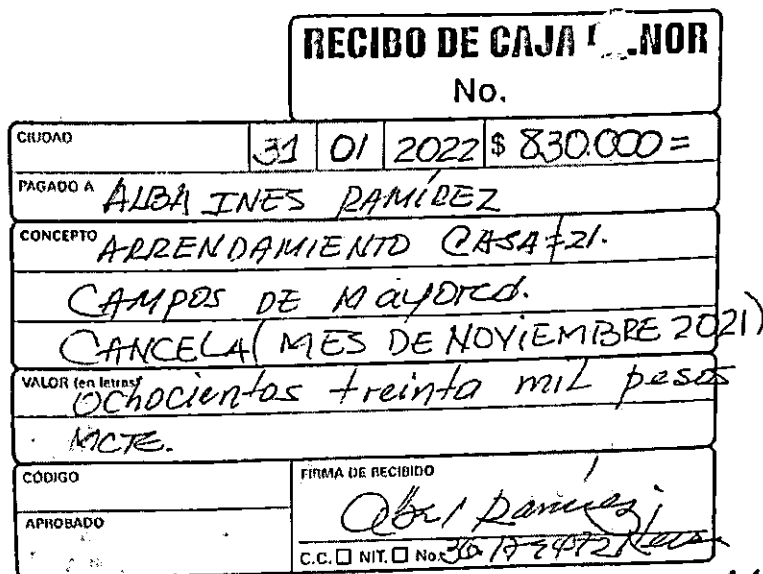 RECIBO DE CAJA
No.
CIUDAD 31 01 2022 $ 830.000=
PAGADO A ALBA INES RAMÍREZ
CONCEPTO ARRENDAMIENTO CASA #21.
CAMPOS DE Mayorca.
CANCELA (MES DE NOVIEMBRE 2021)
VALOR (en letras) Ochocientos treinta mil pesos
MCTE.
CÓDIGO
FIRMA DE RECIBIDO
Ramirez
APROBADO
C.C. NIT. No.